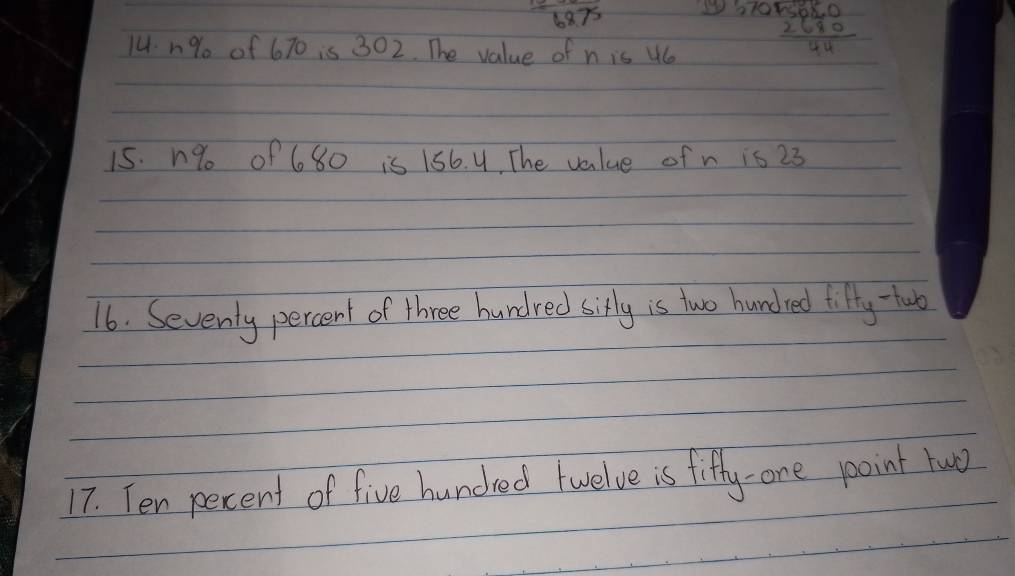 6875
2680
44
14. n% of 670 is 302. The value of n is 46
15. n% of 680 is 156.4. The value of n is 23
16. Seventy percent of three hundred sixty is two hundred fifty-two
17. Ten percent of five hundred twelve is fifty-one point two